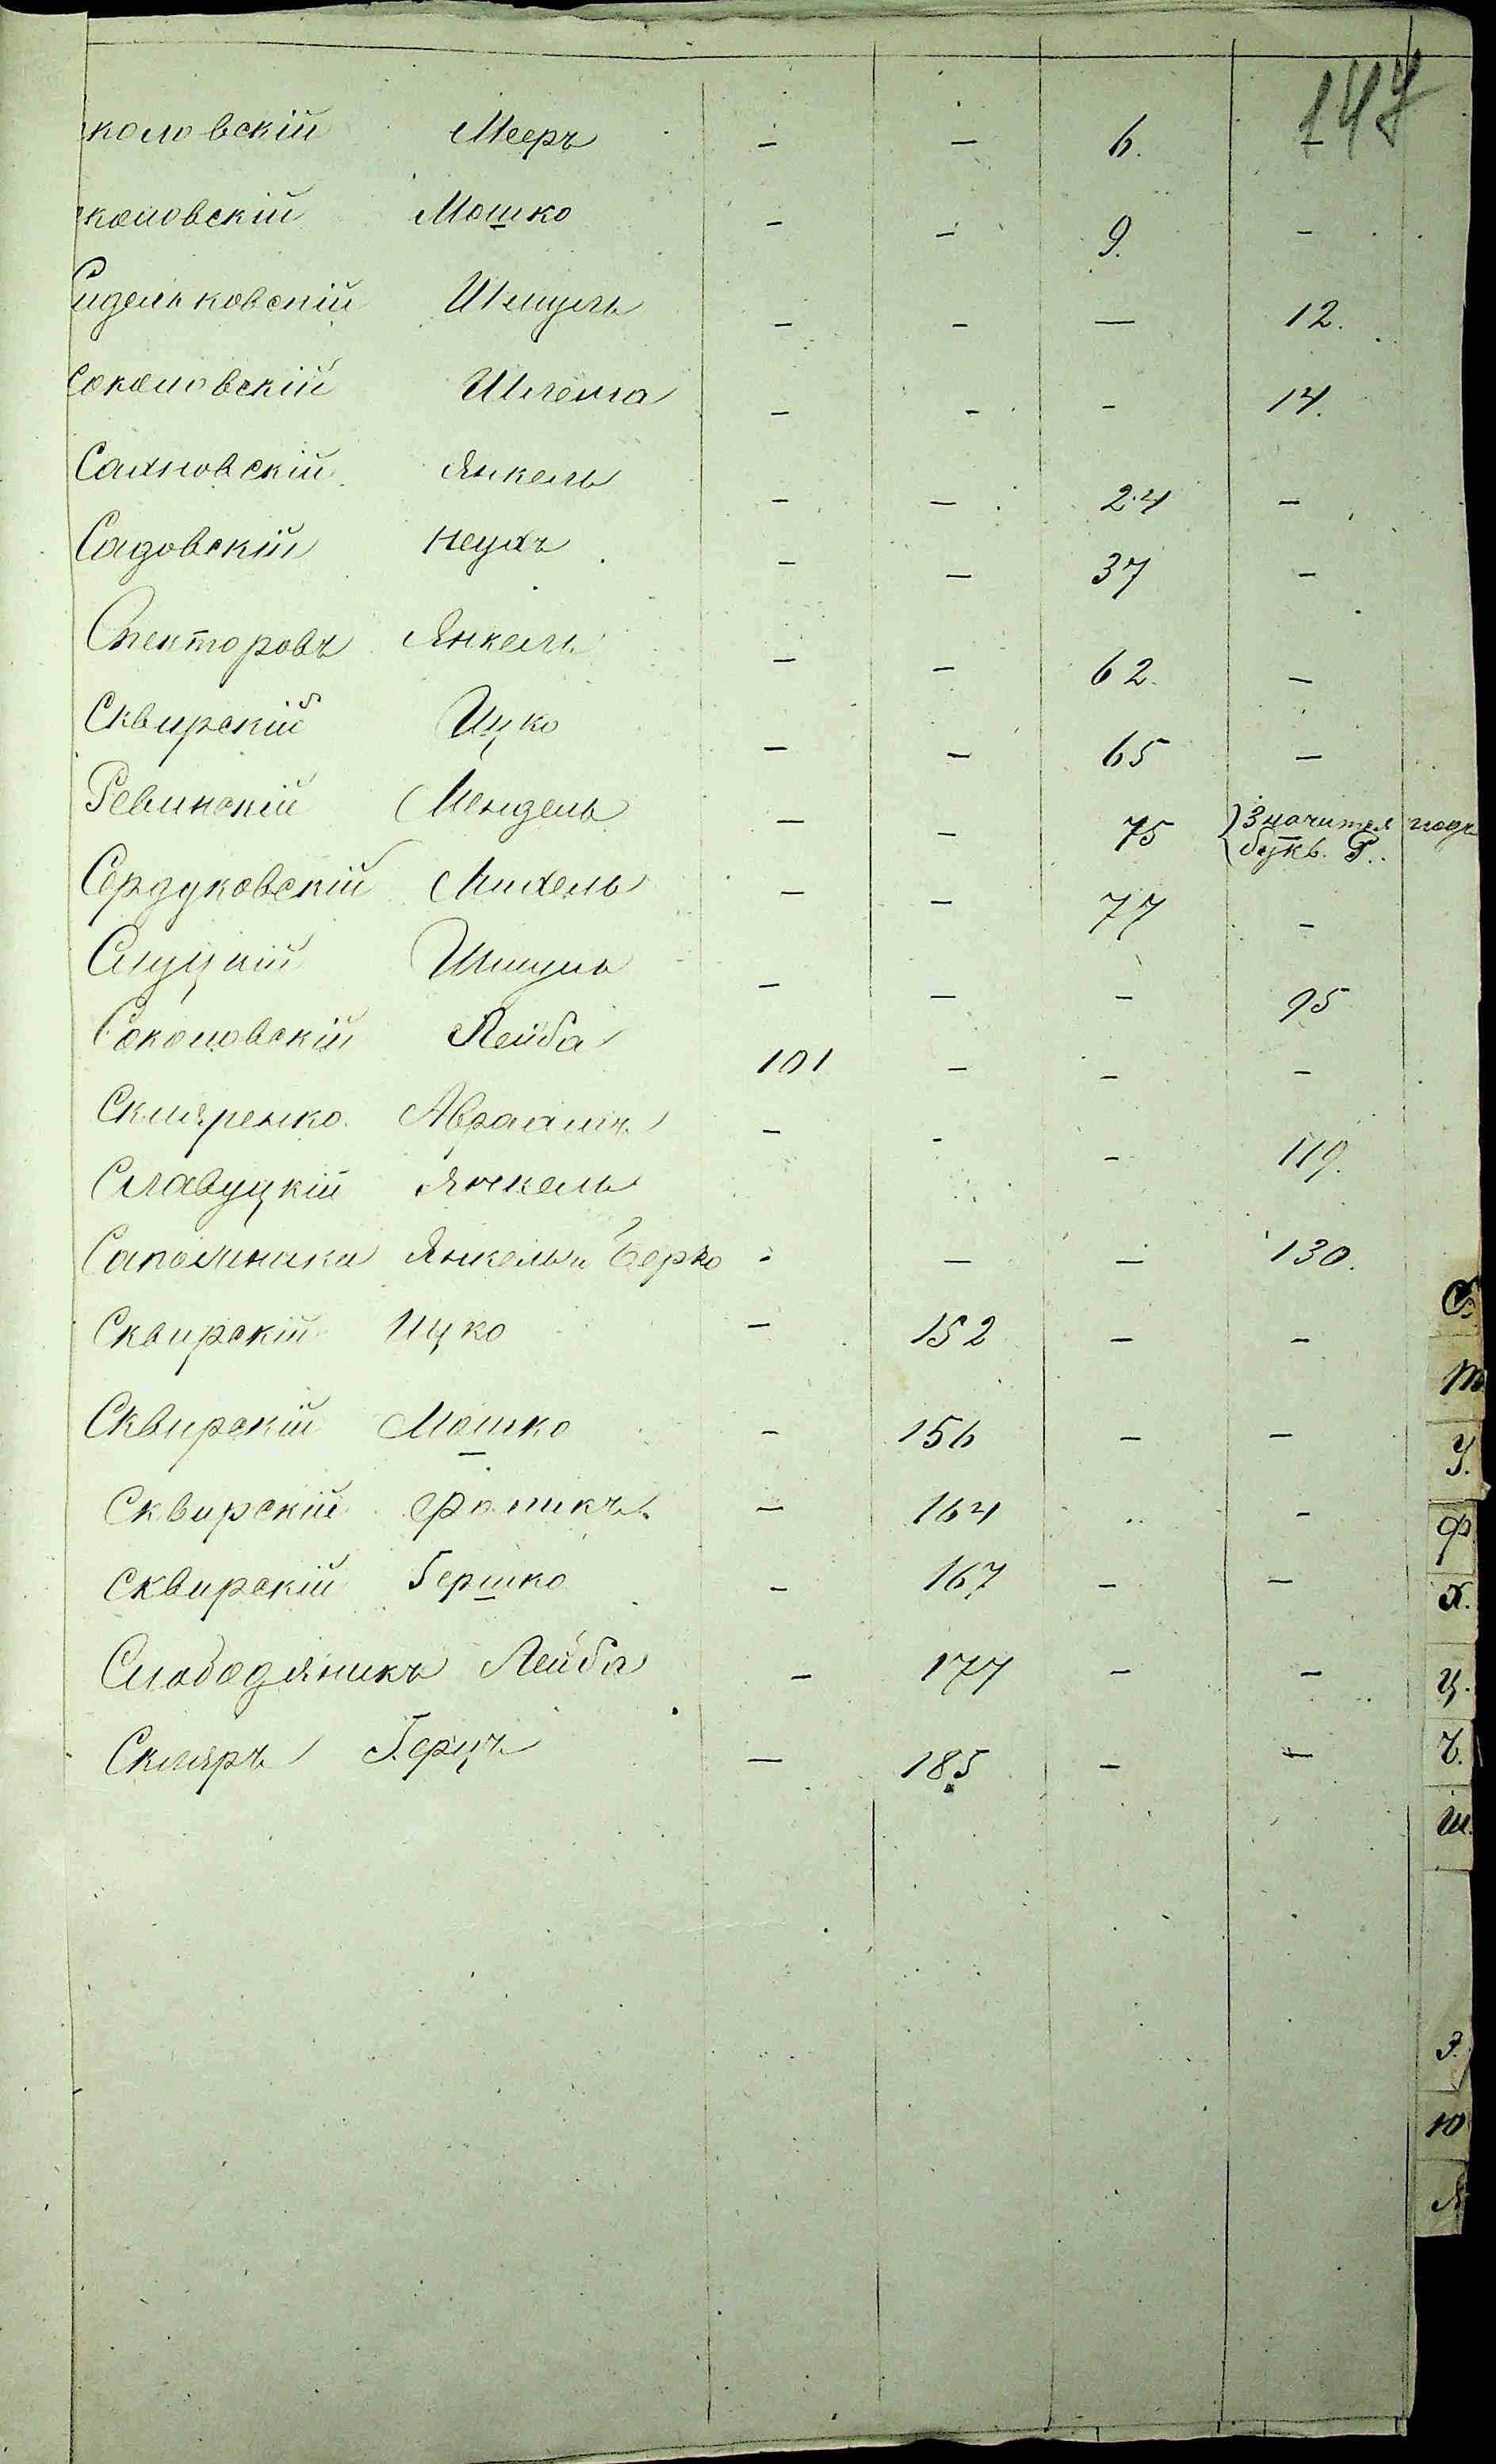 147
коловскій Мееръ - - 6. -
коловскій Мошко - - 9. -
Сидельковскій Шмуль - - - 12.
Соколовскій Шлема - - - 14.
Сахновскій Янкель - - 24 -
Садовскій Неухъ - - 37 -
Спекторовъ Янкель - - 62. -
Сквирскій Ицко - - 65 -
Ревинскій Мендель - - 75 Значится подъ
букв. Р.
Сердуковскій Михель - - 77 -
Слуцкій Шмуль - - - 95
Соколовскій Лейба 101 - - -
Скляренко Авраамъ - - - 119.
Славуцкій Янкель
Сапожники Янкель и Берко - - - 130.
Сквирскій Ицко - 152 - -
Сквирскій Мошко - 156 - -
Сквирскій Фроикъ - 164 - -
Сквирскій Гершко - 167 - -
Слободяникъ Лейба - 177 - -
Скляръ Герцъ - 185 - -
С.
Т
У.
Ф
Х.
Ц.
Ч.
Ш.
Э.
Ю
Я